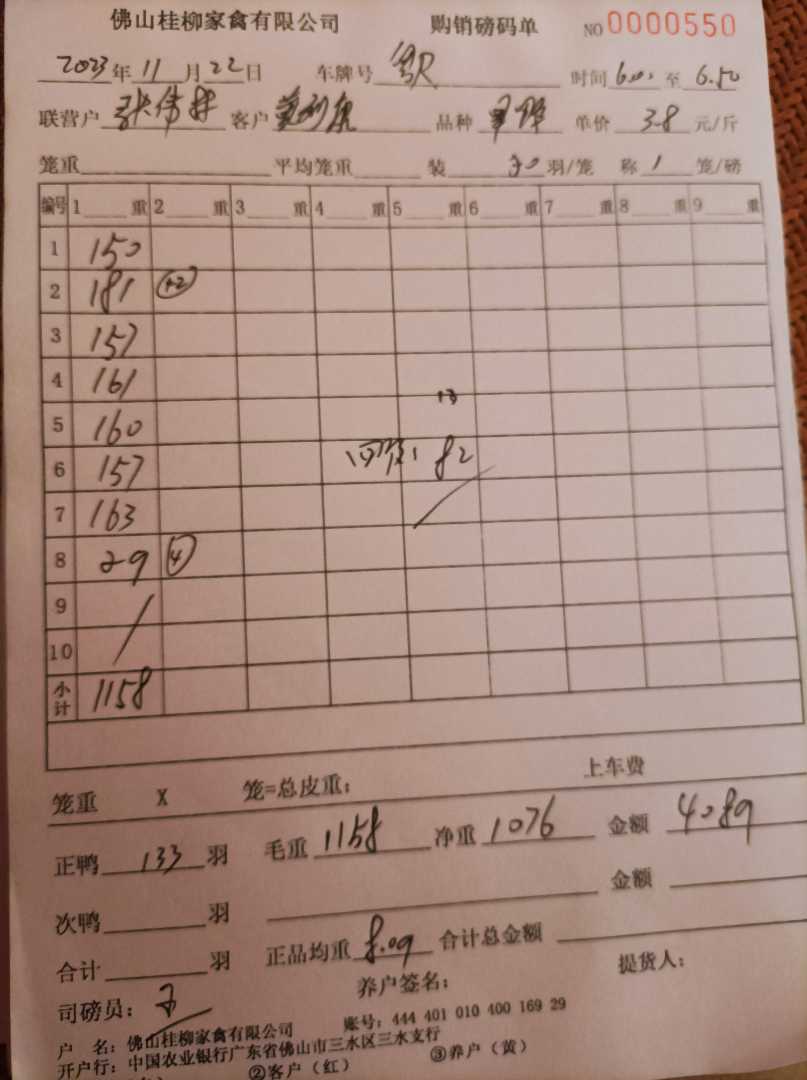 佛山桂柳家禽有限公司 购销磅码单 NO 0000550
2023年 11月 22日 车牌号 时间 6:00 至 6.50
联营户 张伟 客户 品种 单价 3.8 元/斤
笼重 平均笼重 装 羽/笼 称 1 笼/磅
编号 1 重 2 重 3 重 4 重 5 重 6 重 7 重 8 重 9 重
1 150
2 181 +2
3 157
4 161
13
5 160
6 157 82
7 163
8 29 4
9
10
小计 1158
上车费
笼重 X 笼=总皮重:
正鸭 133 羽 毛重 1158 净重 1076 金额 4089
次鸭 羽 金额
合计 羽 正品均重 8.09 合计总金额
司磅员: 养户签名: 提货人:
户 名: 佛山桂柳家禽有限公司 账号: 444 401 010 400 169 29
开户行: 中国农业银行广东省佛山市三水区三水支行
②客户(红) ③养户(黄)